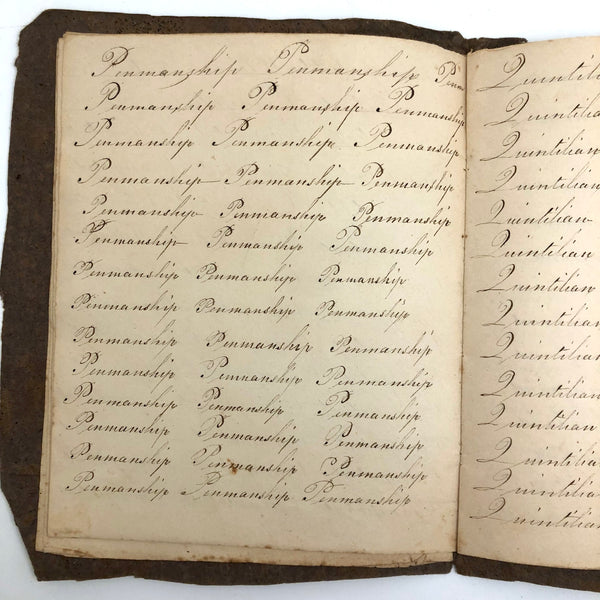 Penmanship Penmanship Penm
Penmanship Penmanship Penmanship
Penmanship Penmanship Penmanship
Penmanship Penmanship Penmanship
Penmanship Penmanship Penmanship
Penmanship Penmanship Penmanship
Penmanship Penmanship Penmanship
Penmanship Penmanship Penmanship
Penmanship Penmanship Penmanship
Penmanship Penmanship Penmanship
Penmanship Penmanship Penmanship
Penmanship Penmanship Penmanship
Penmanship Penmanship Penmanship
Penmanship Penmanship Penmanship
Quintili
Quintilia
Quintilian
Quintilian
Quintilian
Quintilian
Quintilian
Quintilian
Quintilian
Quintilian
Quintilian
Quintilian
Quintilian
Quintilian